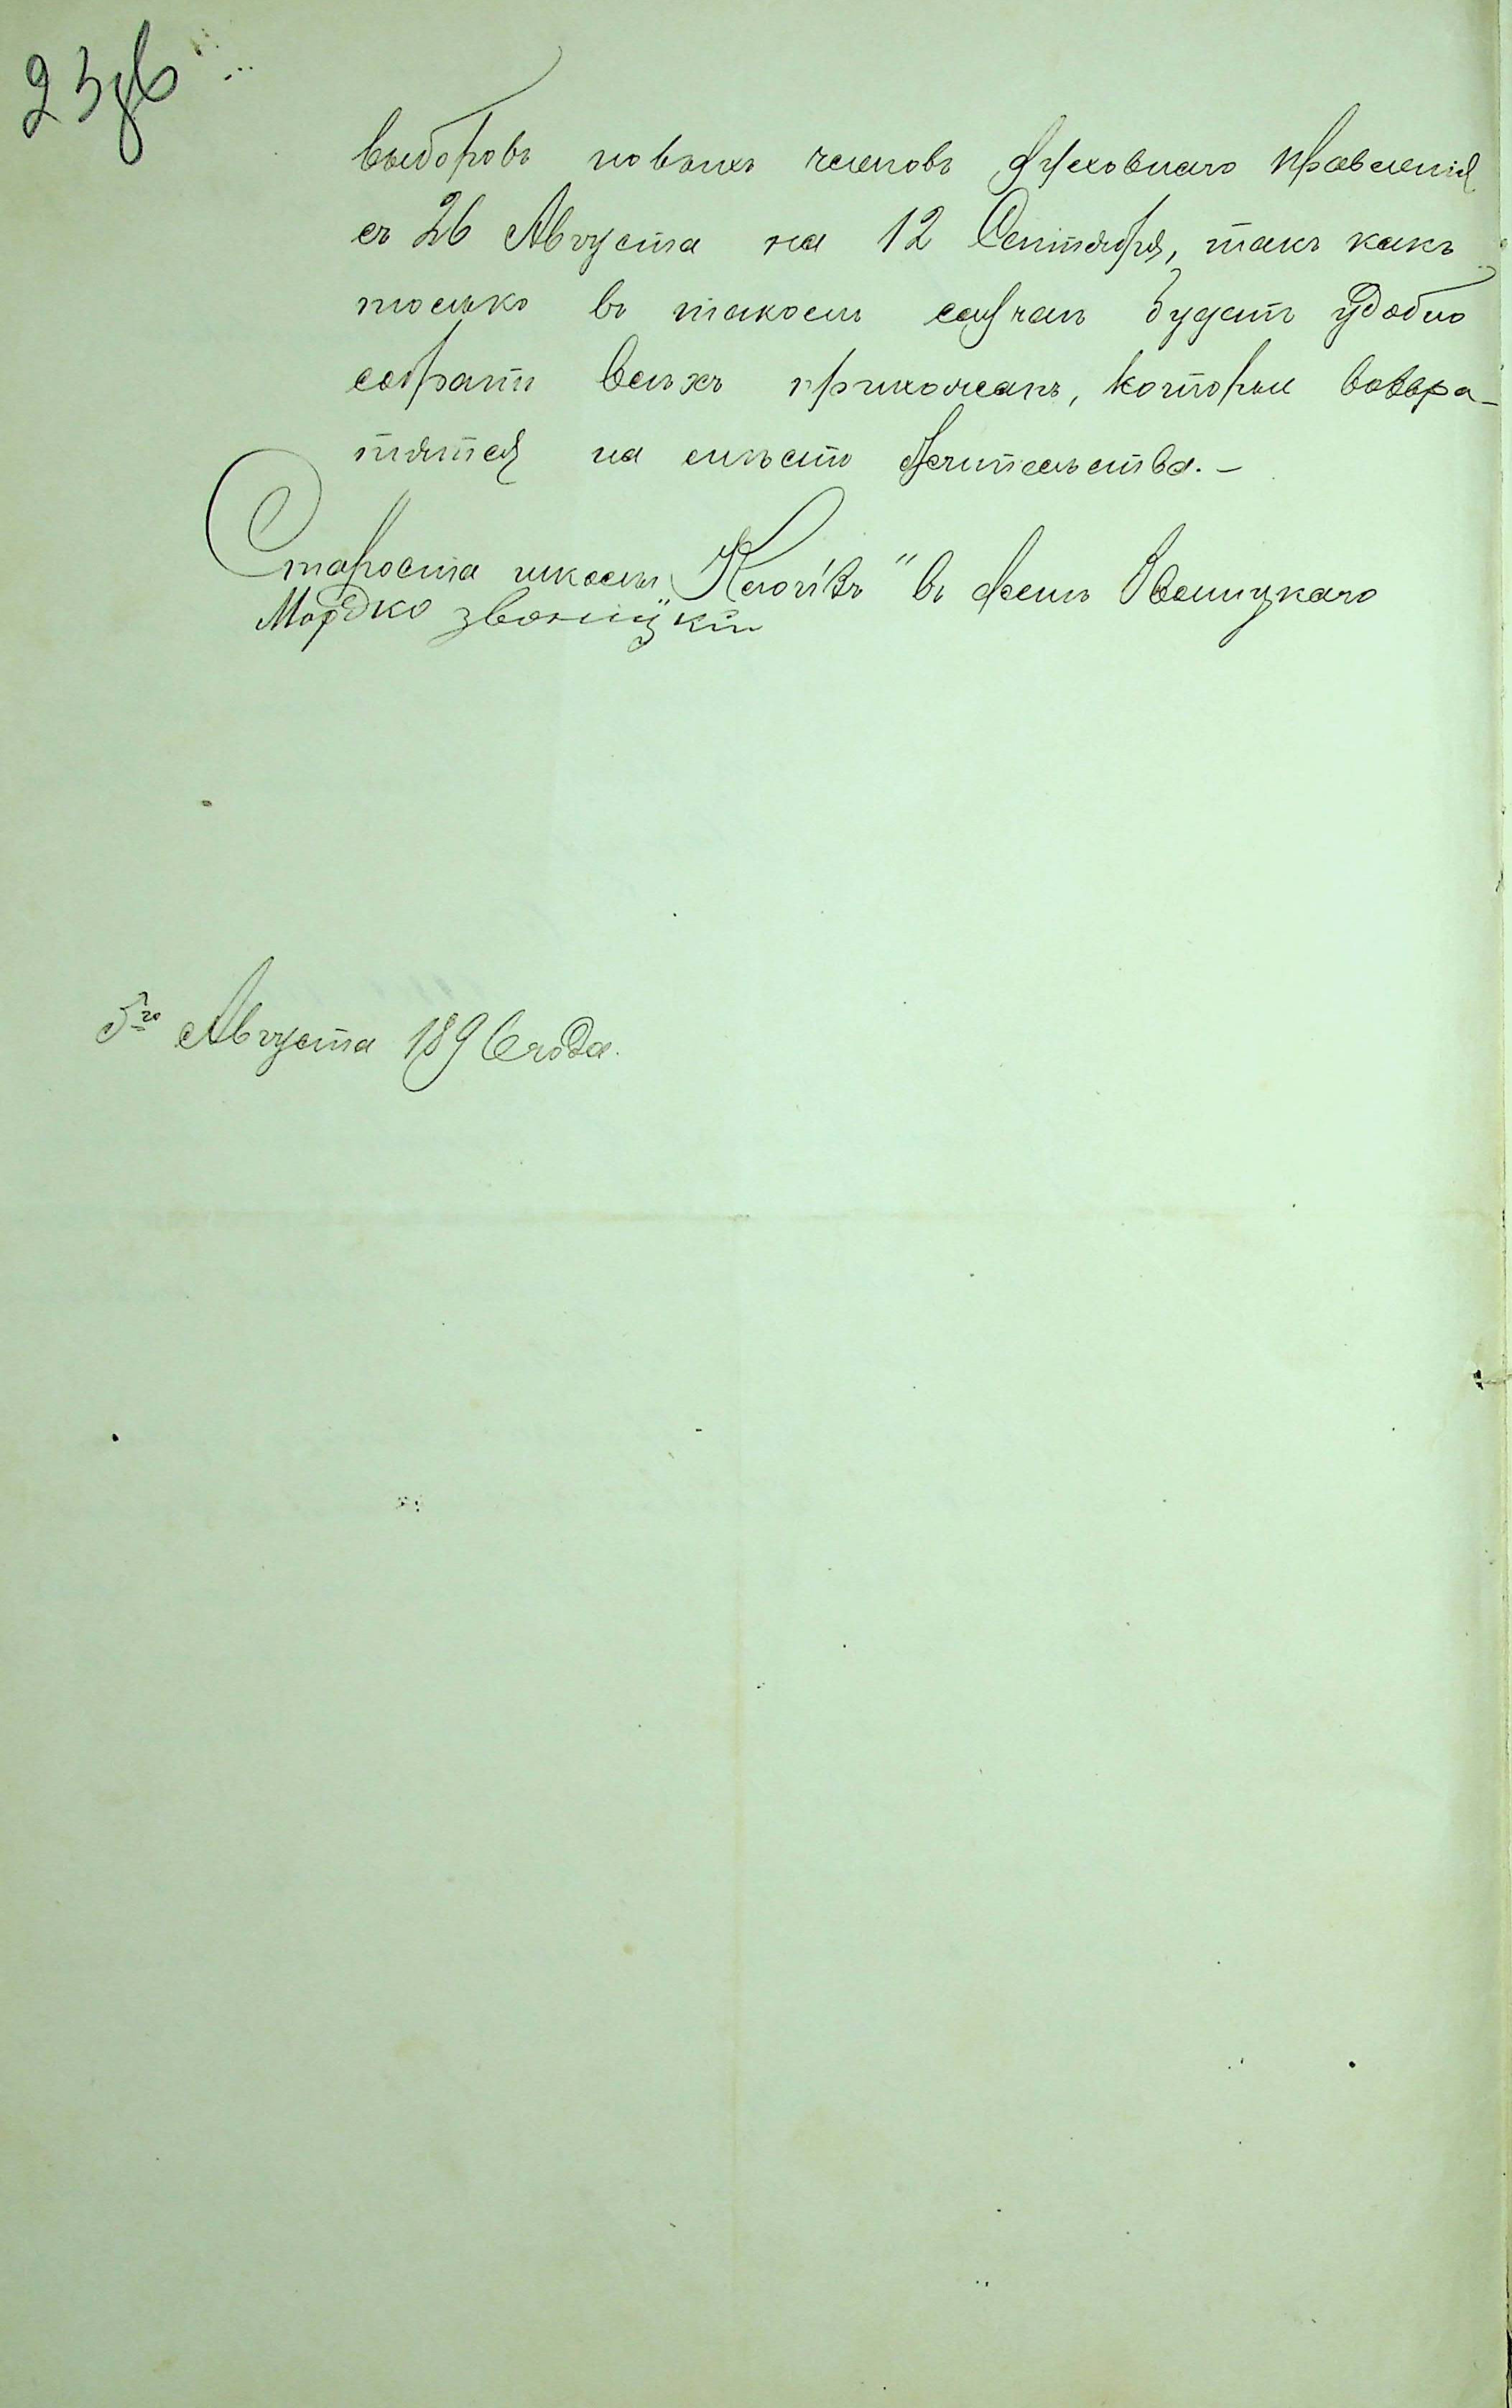 23об
выборовъ новыхъ членовъ Духовнаго Правленія
съ 26 Августа на 12 Сентября, такъ какъ
только въ такомъ случаѣ будетъ удобно
собрать всѣхъ прихожанъ, которые возвра-
тятся на мѣсто жительства.-
Староста школы " въ домѣ Звоницкаго
Мордко Звоницкій
5го Августа 1896 года.